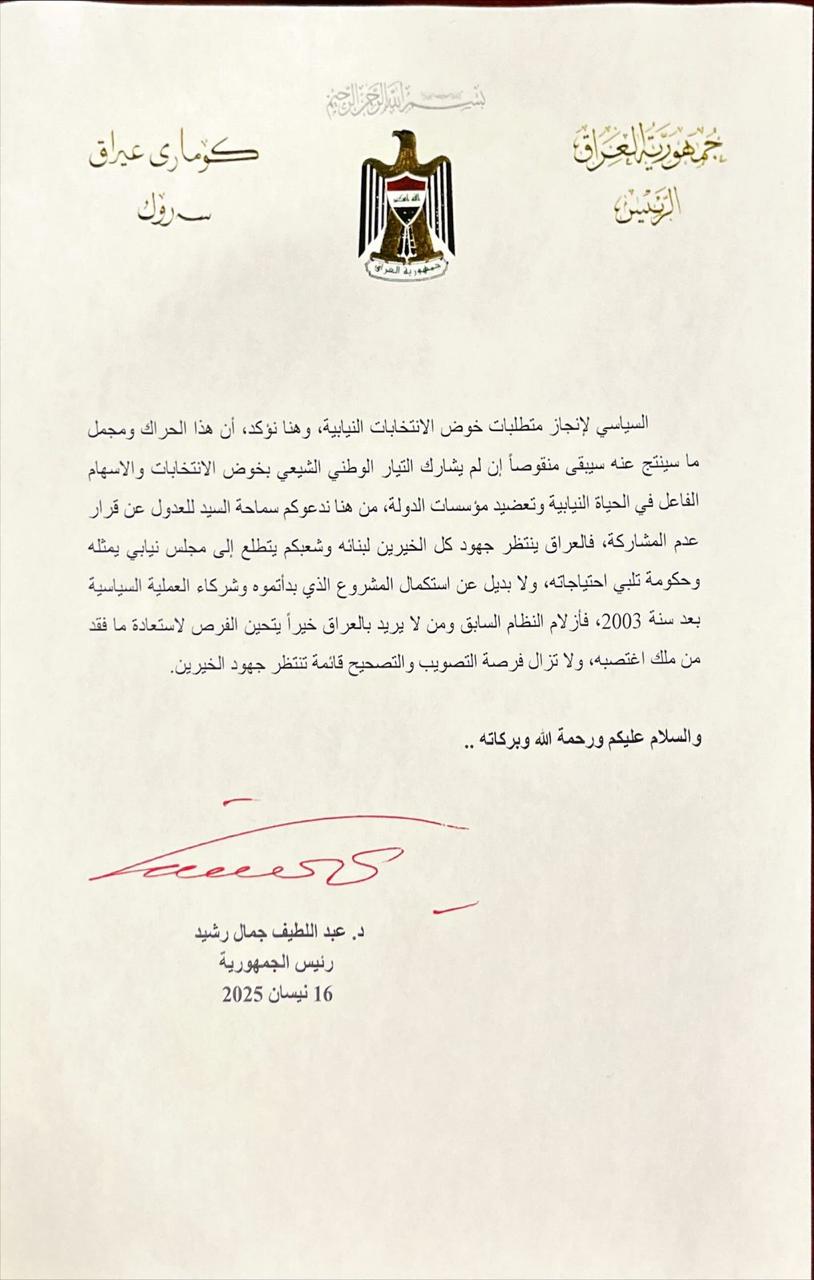 بسم الله الرحمن الرحيم
جمهورية العراق
الرئيس
كۆماری عیراق
سەرۆك
الله اكبر
جمهورية العراق
السياسي لإنجاز متطلبات خوض الانتخابات النيابية، وهنا نؤكد، أن هذا الحراك ومجمل
ما سينتج عنه سيبقى منقوصاً إن لم يشارك التيار الوطني الشيعي بخوض الانتخابات والاسهام
الفاعل في الحياة النيابية وتعضيد مؤسسات الدولة، من هنا ندعوكم سماحة السيد للعدول عن قرار
عدم المشاركة، فالعراق ينتظر جهود كل الخيرين لبنائه وشعبكم يتطلع إلى مجلس نيابي يمثله
وحكومة تلبي احتياجاته، ولا بديل عن استكمال المشروع الذي بدأتموه وشركاء العملية السياسية
بعد سنة 2003، فأزلام النظام السابق ومن لا يريد بالعراق خيراً يتحين الفرص لاستعادة ما فقد
من ملك اغتصبه، ولا تزال فرصة التصويب والتصحيح قائمة تنتظر جهود الخيرين.
والسلام عليكم ورحمة الله وبركاته ..
د. عبد اللطيف جمال رشيد
رئيس الجمهورية
16 نيسان 2025